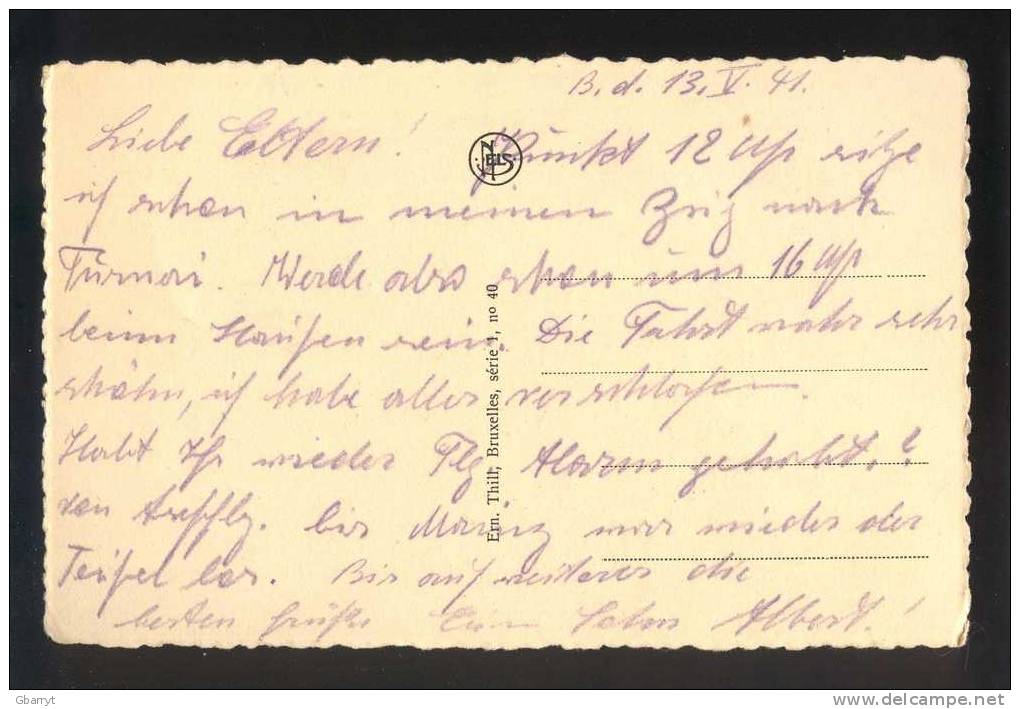 B. d. 13. V. 41.
Liebe Eltern! Punkt 12 Uhr sitze
ich schon in meinen Zug nach
Turnai. Werde also schon um 16 Uhr
beim Haufen sein. Die Fahrt wahr sehr
schöhn, ich habe alles verschlafen
Habt Ihr wieder Flg Alarm gehabt.?
von bis Mainz war wieder der
Teifel los. Bis auf weiteres die
besten Grüße Euer Sohn Albert!
NELS
Ern. Thill, Bruxelles, série 1, no 40
Gbarryt
www.delcampe.net